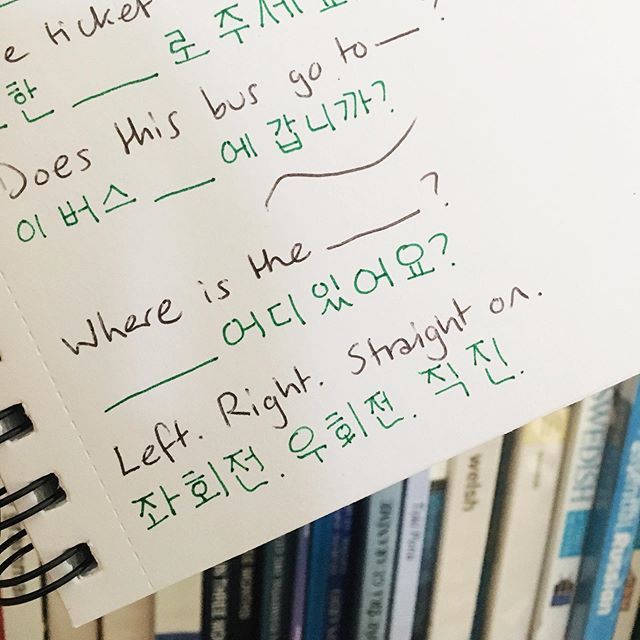 e ticket
한 ____ 로 주세요
Does this bus go to — ?
이 버스 ___ 에 갑니까?
Where is the ____?
____ 어디 있어요?
Left. Right. Straight on.
좌회전. 우회전. 직진.
welsh
SWEDISH